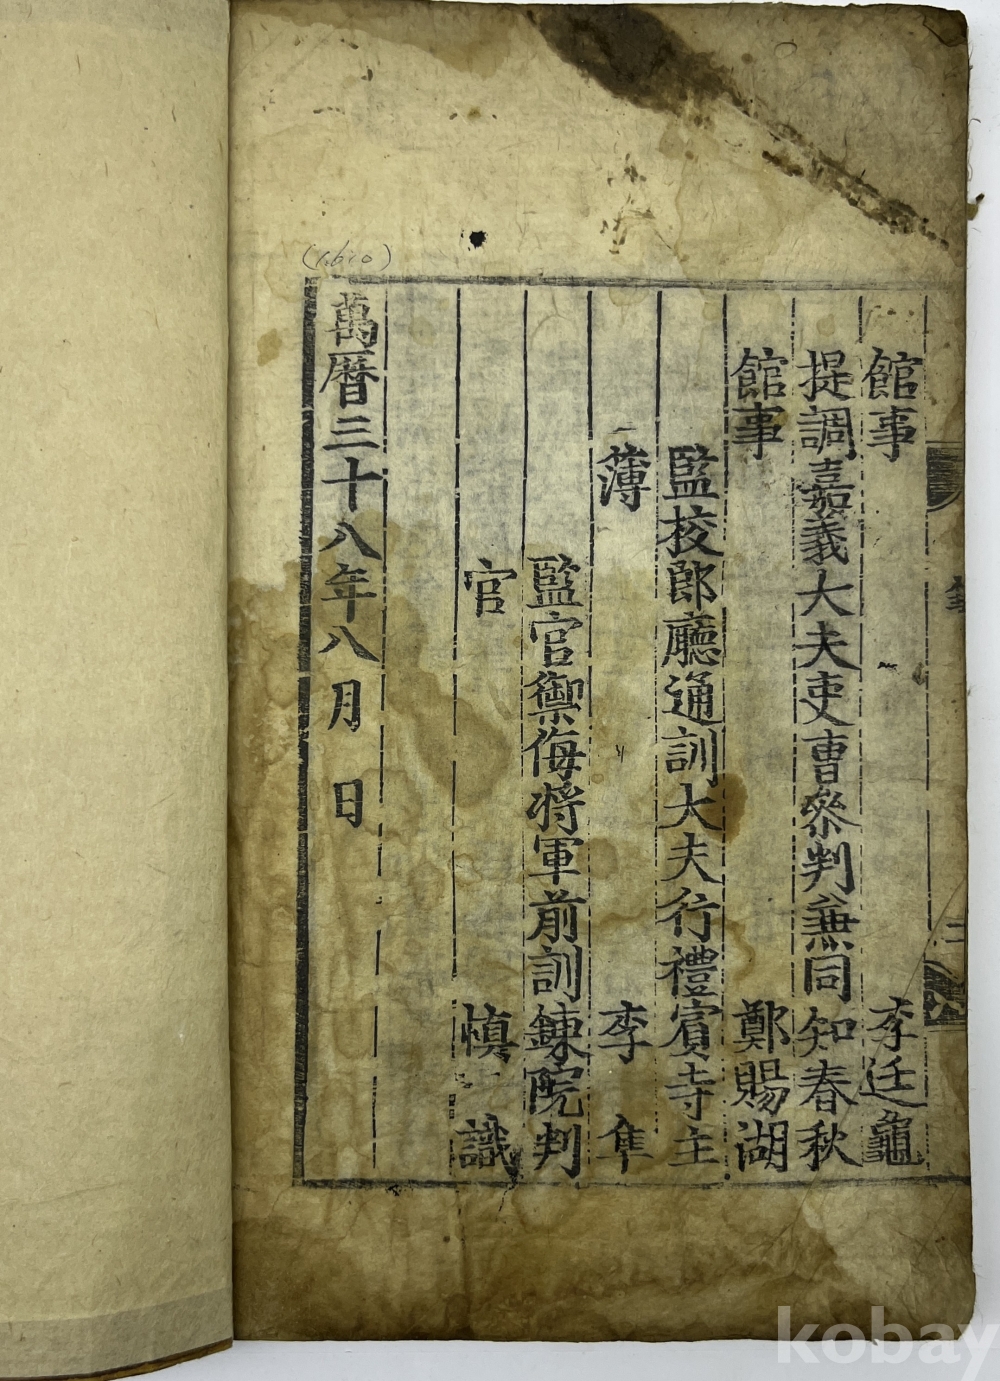 館事 李廷龜
提調嘉義大夫吏曹參判兼同知春秋
館事 鄭賜湖
監校郎廳通訓大夫行禮賓寺主
薄 李隼
監官禦侮將軍前訓鍊院判
官 慎識
萬曆三十八年八月 日
(1610)
二
kobay